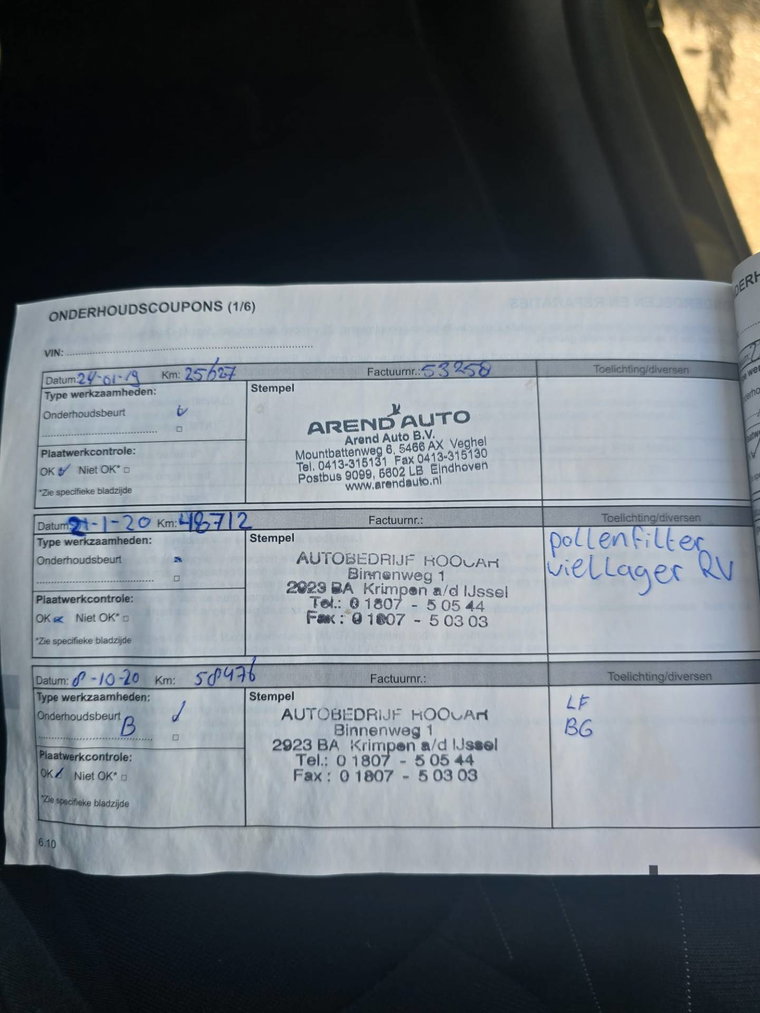 ONDERHOUDSCOUPONS (1/6)
VIN:
Datum: 24-01-19 Km: 25627 Factuurnr.: 53258 Toelichting/diversen
Type werkzaamheden:
Onderhoudsbeurt
Plaatwerkcontrole:
OK Niet OK*
*Zie specifieke bladzijde
Stempel
AREND AUTO
Arend Auto B.V.
Mountbattenweg 6, 5466 AX Veghel
Tel. 0413-315131 Fax 0413-315130
Postbus 9099, 5602 LB Eindhoven
www.arendauto.nl
Datum: 21-1-20 Km: 48712 Factuurnr.: Toelichting/diversen
Type werkzaamheden:
Onderhoudsbeurt
Plaatwerkcontrole:
OK Niet OK*
*Zie specifieke bladzijde
Stempel
AUTOBEDRIJF
Binnenweg 1
2923 BA Krimpen a/d IJssel
Tel.: 0 1807 - 5 05 44
Fax : 0 1807 - 5 03 03
pollenfilter
wiellager RV
Datum: 8-10-20 Km: 58476 Factuurnr.: Toelichting/diversen
Type werkzaamheden:
Onderhoudsbeurt
B
Plaatwerkcontrole:
OK Niet OK*
*Zie specifieke bladzijde
Stempel
AUTOBEDRIJF
Binnenweg 1
2923 BA Krimpen a/d IJssel
Tel.: 0 1807 - 5 05 44
Fax : 0 1807 - 5 03 03
LF
BG
6.10